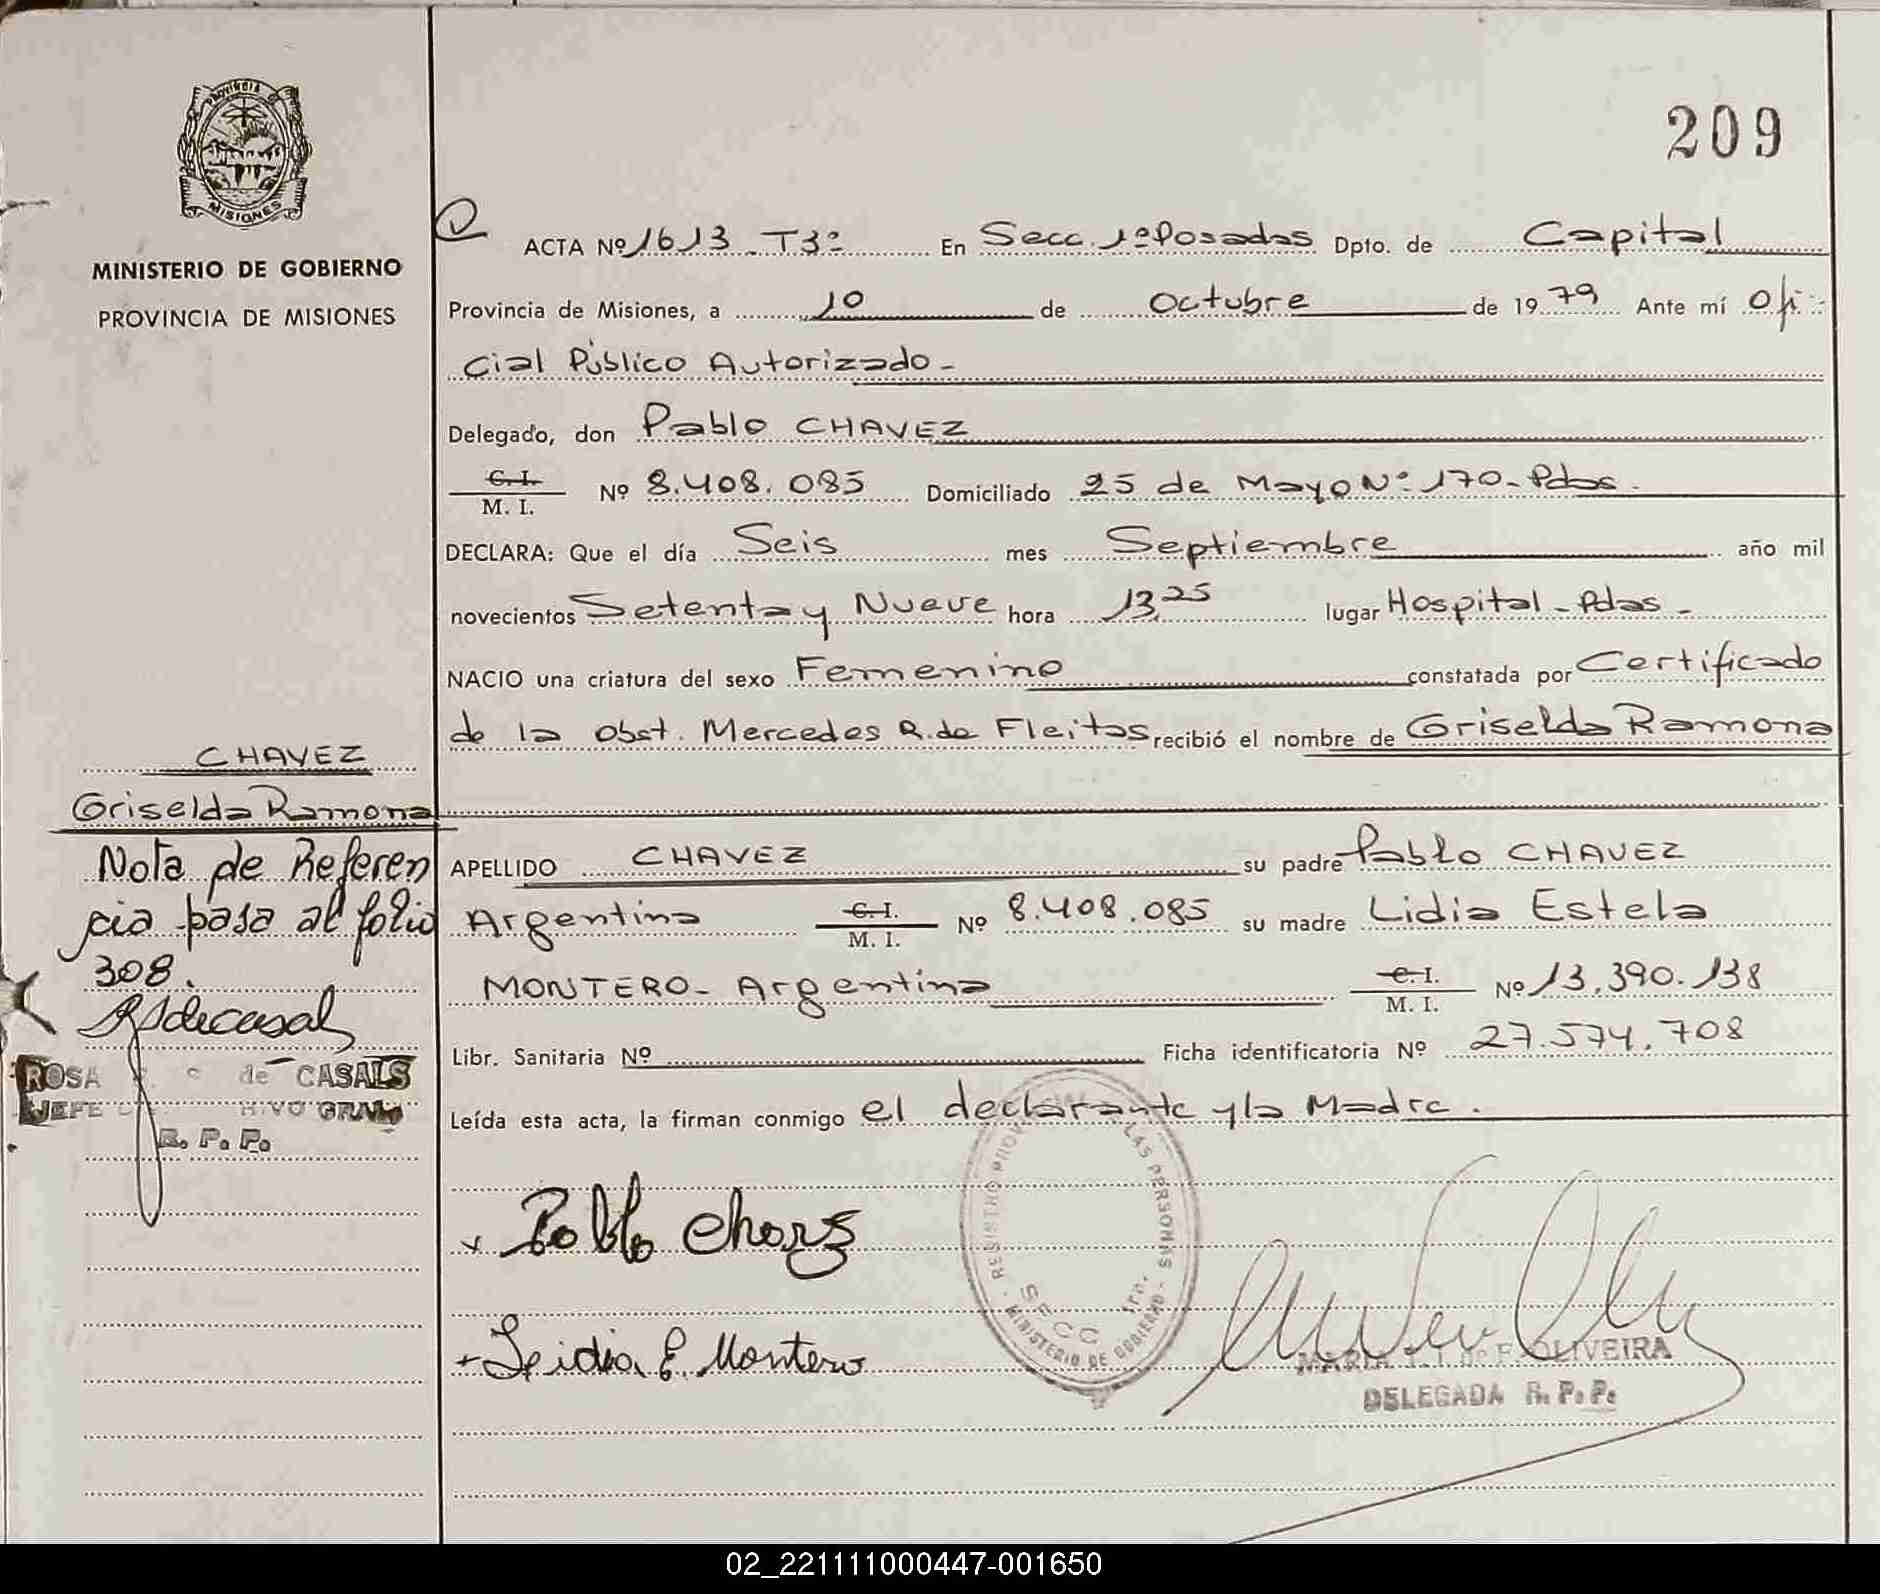 PROVINCIA DE
MISIONES
MINISTERIO DE GOBIERNO
PROVINCIA DE MISIONES
209
ACTA Nº 1613 - T3º En Secc. 1º Posadas Dpto. de Capital
Provincia de Misiones, a 10 de Octubre de 1979 Ante mí Ofi-
cial Público Autorizado -
Delegado, don Pablo CHAVEZ
C. I.
M. I. Nº 8.408.085 Domiciliado 25 de Mayo Nº 170 - Pdas.
DECLARA: Que el día Seis mes Septiembre año mil
novecientos Setenta y Nueve hora 13,25 lugar Hospital - Pdas -
NACIO una criatura del sexo Femenino constatada por Certificado
de la Obst. Mercedes R. de Fleitas recibió el nombre de Griselda Ramona
CHAVEZ
Griselda Ramona
Nota de Referen
cia pasa al folio
308.
ROSA de CASALS
JEFE
R. P. P.
APELLIDO CHAVEZ su padre Pablo CHAVEZ
Argentino C. I.
M. I. Nº 8.408.085 su madre Lidia Estela
MONTERO - Argentina C. I.
M. I. Nº 13.390.138
Libr. Sanitaria Nº Ficha identificatoria Nº 27.574.708
Leída esta acta, la firman conmigo el declarante y la Madre.
Pablo Chavez
Leidia E. Montero
REGISTRO LAS PERSONAS
SECC 1ra.
MINISTERIO DE GOBIERNO
MARIA OLIVEIRA
DELEGADA R. P. P.
02_221111000447-001650